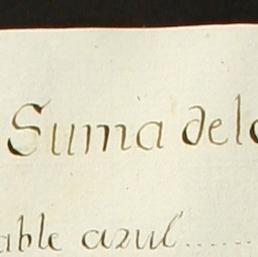 Suma delo
able azul......